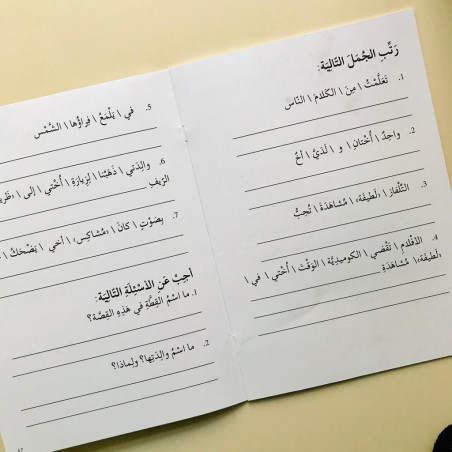 رَتِّبِ الجُمَلَ التّالِيَة:
1. تَعَلَّمْتُ \ مِنَ \ الكَلامَ \ النّاس
2. واحِدٌ \ أُخْتانِ \ و \ لَدَيَّ \ أخٌ
3. التِّلْفاز \ «لَطيفَة» \ مُشاهَدَةَ \ تُحِبُّ
4. الأفْلامِ \ تَقْضي \ الكوميدِيَّة \ الوَقْتَ \ أُخْتي \ في \
«لَطيفَة» \ مُشاهَدَةِ
5. في \ يَلْمَعُ \ فِراؤُها \ الشَّمْس
6. والِدَتي \ ذَهَبْنا \ لِزِيارَةِ \ أُخْتي \ إلى \
الرّيف
7. بِصَوْتٍ \ كانَ \ «مُشاكِس» \ أخي \ يَضْحَكُ \
أجِبْ عَنِ الأسْئِلَةِ التّالِيَة:
1. ما اسْمُ القِطَّةِ في هَذِهِ القِصَّة؟
2. ما اسْمُ والِدَتِها؟ ولِماذا؟